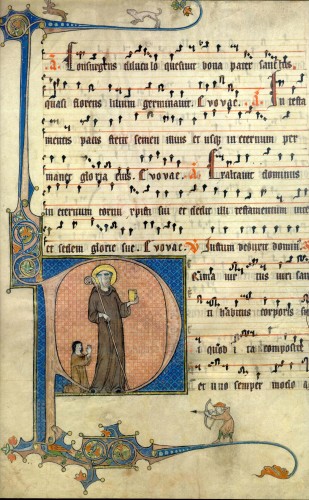 Consurgens diluculo quesivit bona pater sanctus
quasi florens lilium germinavit. Evovae. A. In testa
mentis pacis stetit semen illius et usq; in eternum per
manet gloria eius. Evovae. A. Exaltavit dominus
in eternum cornu xpisti sui et dedit illi testamentum
et sedem glorie sue. Evovae. V. Iustum deduxit domin
tus iuri san
ni habitus corporis
i quod i ta composite
et uno semper modo a